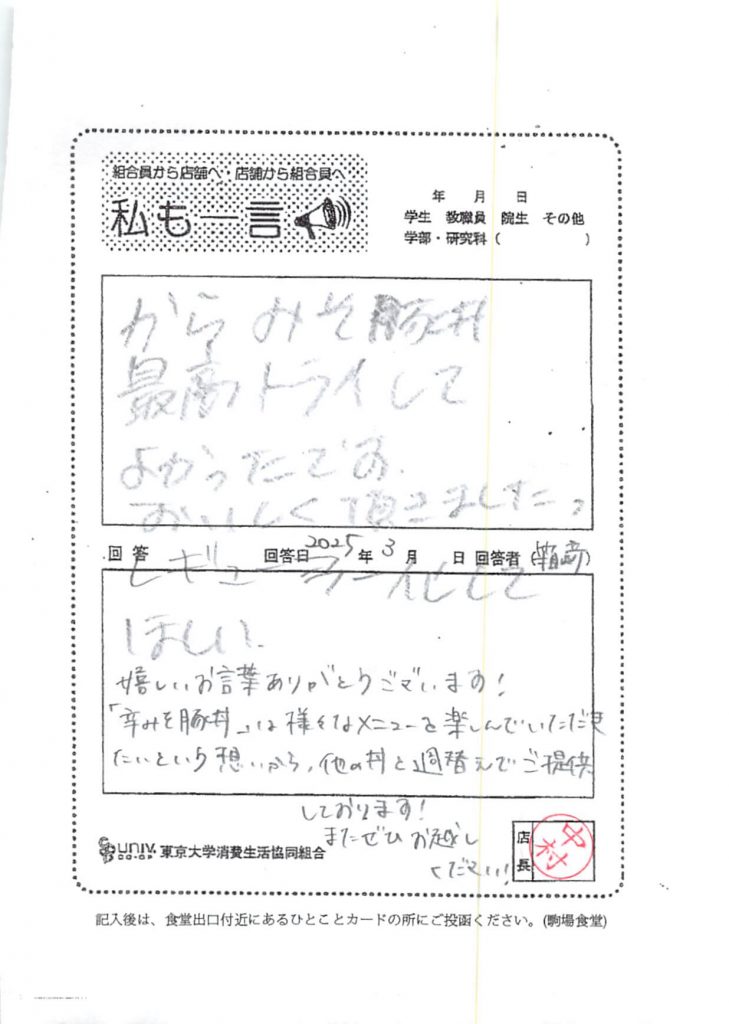 組合員から店舗へ・店舗から組合員へ
私も一言
年 月 日
学生 教職員 院生 その他
学部・研究科（ ）
からみそ豚丼
最高トライして
よかったです.
おいしく頂きました
回答 回答日 2025年3月 日 回答者（ ）
レギューラー化して
ほしい.
嬉しいお言葉ありがとうございます!
「辛みそ豚丼」は様々なメニューを楽しんでいただき
たいという想いから、他の丼と週替えでご提供
しております!
またぜひお越し
ください!
UNIV. CO-OP 東京大学消費生活協同組合
店長 中村
記入後は、食堂出口付近にあるひとことカードの所にご投函ください。(駒場食堂)